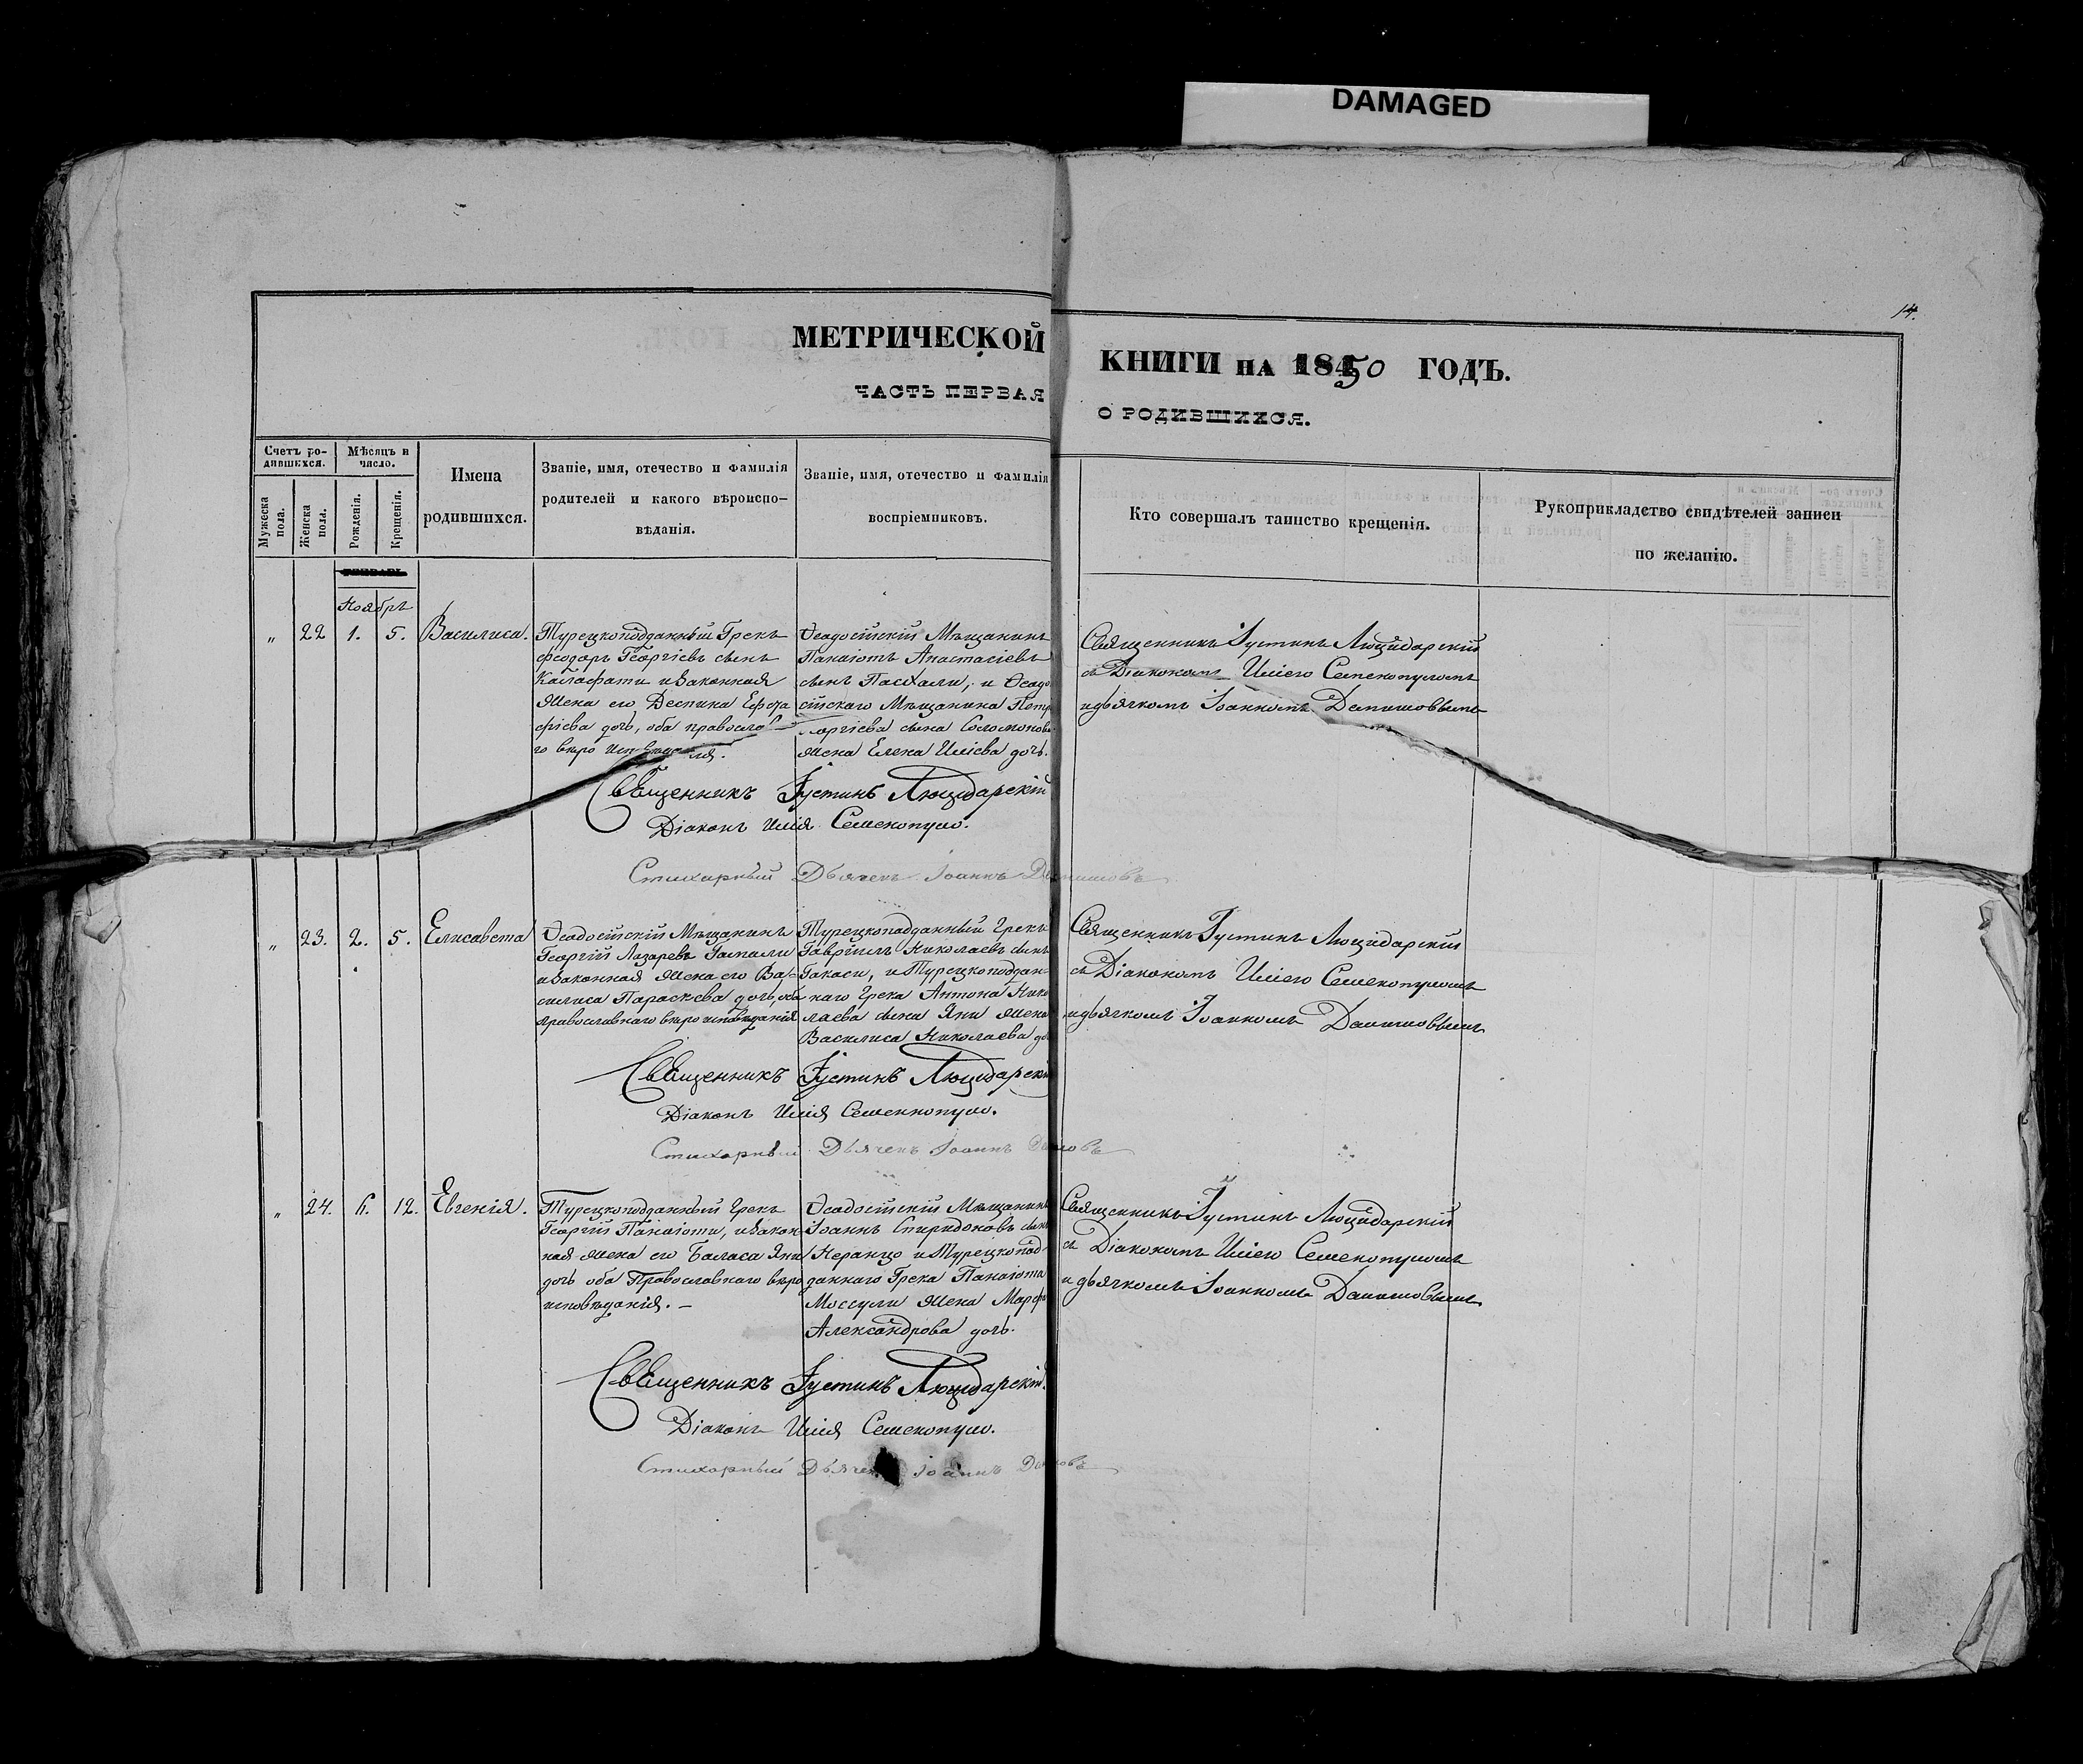 DAMAGED
14.
МЕТРИЧЕСКОЙ КНИГИ НА 1850 ГОДЪ.
ЧАСТЬ ПЕРВАЯ О РОДИВШИХСЯ.
Счетъ ро-
дившихся.
Мужеска
пола.
Женска
пола.
Мѣсяцъ и
число.
Рожденія.
Крещенія.
Имена
родившихся.
Званіе, имя, отечество и фамилія
родителей и какого вѣроиспо-
вѣданія.
Званіе, имя, отечество и фамилія
воспріемниковъ.
Кто совершалъ таинство крещенія.
Рукоприкладство свидѣтелей записи
по желанію.
Ноябрь
" 22 1. 5. Василиса.
Турецкоподданный Грекъ
Феодоръ Георгіевъ сынъ
Калафати и законная
жена его Деспина
дочь, оба православ
го вѣро
Ѳеодосійскій Мѣщанинъ
Панаіотъ Анастасіевъ
сынъ Пасхали, и Ѳеодо
сійскаго Мѣщанина Петр
сына Соломонов
жена Елена Иліева дочь.
Священникъ Іустинъ Люцидарскій
съ Діакономъ Иліею Семенопуломъ
и дьячкомъ Іоанномъ Даниловымъ
Священникъ Іустинъ Люцидарскій
Діаконъ Илія Семенопуло.
Стихарный Дьячекъ Іоаннъ
" 23. 2. 5. Елисавета
Ѳеодосійскій Мѣщанинъ
Георгій Лазаревъ
и законная жена его Ва-
силиса Параскева дочь, оба
православнаго вѣроисповѣданія
Турецкоподданный Грекъ
Гавріилъ Николаевъ сынъ
Гакаси, и Турецкоподдан-
наго Грека Антона Нико
лаева сына Яни жена
Василиса Николаева до
Священникъ Іустинъ Люцидарскій
съ Діакономъ Иліею Семенопуломъ
и дьячкомъ Іоанномъ Даниловымъ
Священникъ Іустинъ Люцидарскі
Діаконъ Илія Семенопуло.
Стихарный Дьячекъ Іоаннъ
" 24. 6. 12. Евгенія.
Турецкоподданный Грекъ
Георгій Панаіоти, и закон
ная жена его Баласа Яни
дочь оба Православнаго вѣро
исповѣданія. —
Ѳеодосійскій Мѣщанинъ
Іоаннъ Спиридоновъ сынъ
Неранцо и Турецкопод-
даннаго Грека Панаіота
Моссули жена Марѳ
Александрова дочь.
Священникъ Іустинъ Люцидарскій
съ Діакономъ Иліею Семенопуломъ
и дьячкомъ Іоанномъ Даниловымъ
Священникъ Іустинъ Люцидарскій.
Діаконъ Илія Семенопуло.
Стихарный Дьячекъ Іоаннъ